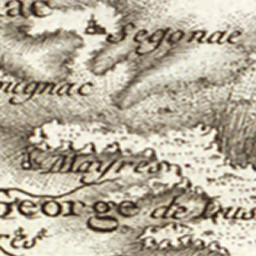 ac
Segonac
mignac
Mayres
George de Leus
rés